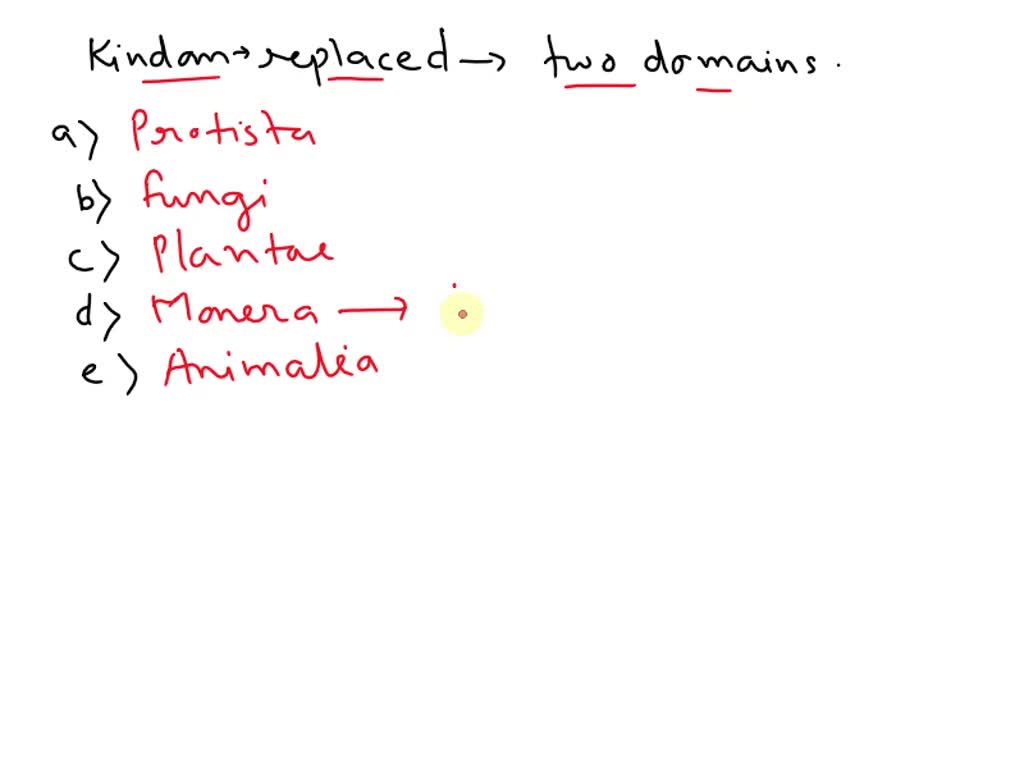 Kindom → replaced → two domains.
a) Protista
b) fungi
c) Plantae
d) Monera →
e) Animalia